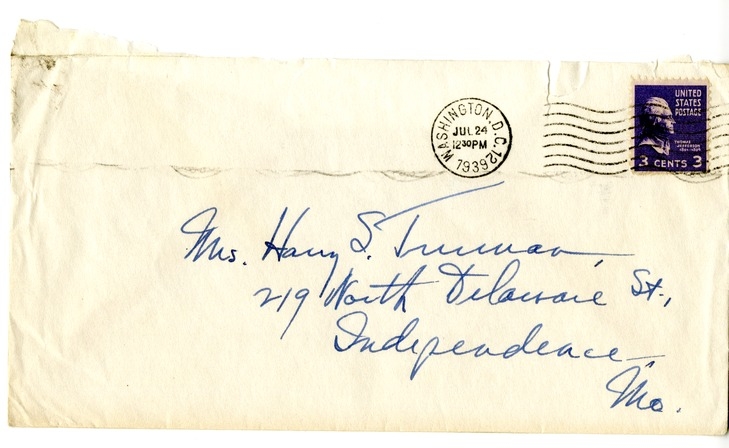 WASHINGTON, D.C. 12
JUL 24
12 30 PM
1939
UNITED
STATES
POSTAGE
THOMAS
JEFFERSON
1801-1809
3 CENTS 3
Mrs. Harry S. Truman,
219 North Delaware St.,
Independence
Mo.